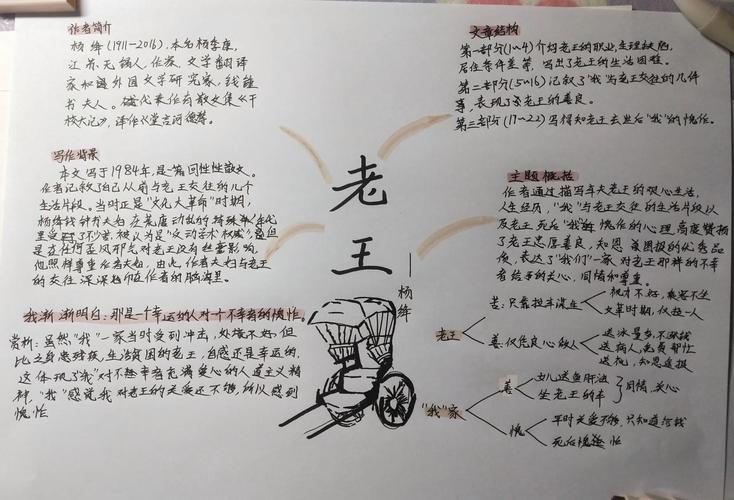 作者简介
杨绛(1911-2016),本名杨季康,
江苏无锡人,作家,文学翻译
家和外国文学研究家,钱锺
书夫人。代表作有散文集《干
校六记》,译作《堂吉诃德》等。
写作背景
本文写于1984年,是篇回忆性散文。
作者记叙了自己从前与老王交往的几个
生活片段。当时正是"文化大革命"时期,
杨绛钱钟书夫妇在荒唐动乱的特殊年代
里受了不少苦,被认为是"反动学术权威",但
是在任何歪风邪气对老王没有丝毫影响,
他照样尊重作者夫妇。由此,作者夫妇与老王
的交往深深地印在作者的脑海里。
我渐渐明白:那是一个幸运的人对一个不幸者的愧怍。
赏析:虽然"我"一家当时受到冲击,处境不好,但
比之身患残疾,生活贫困的老王,自感还是幸运的,
这体现了"我"对不幸者充满爱心的人道主义精
神,"我"感觉我对老王的关爱还不够,所以感到
愧怍
老王
—杨绛
文章结构
第一部分(1~4)介绍老王的职业,生理缺陷,
居住条件差等,写出了老王的生活困难。
第二部分(5~16)记叙了"我"与老王交往的几件
事,表现了老王的善良。
第三部分(17~22)写得知老王去世后"我"的愧怍。
主题概括
作者通过描写车夫老王的艰心生活,
人生经历,"我"与老王交往的生活片段以
及老王死后"我"愧怍的心理,高度赞扬
了老王忠厚善良,知恩图报的优秀品
质,表达了"我们"一家对老王那样的不幸
者给予的关心,同情和尊重。
老王
苦:只靠拉车谋生
眼力不好,乘客不坐
文革时期,仅拉一人
善:仅凭良心做人
送冰量多,不涨钱
送病人,免费帮忙
送花,知恩速报
"我"家
善
女儿送鱼肝油
坐老王的车
同情、关心
愧
平时关爱不够,只知道给钱
死后愧怍